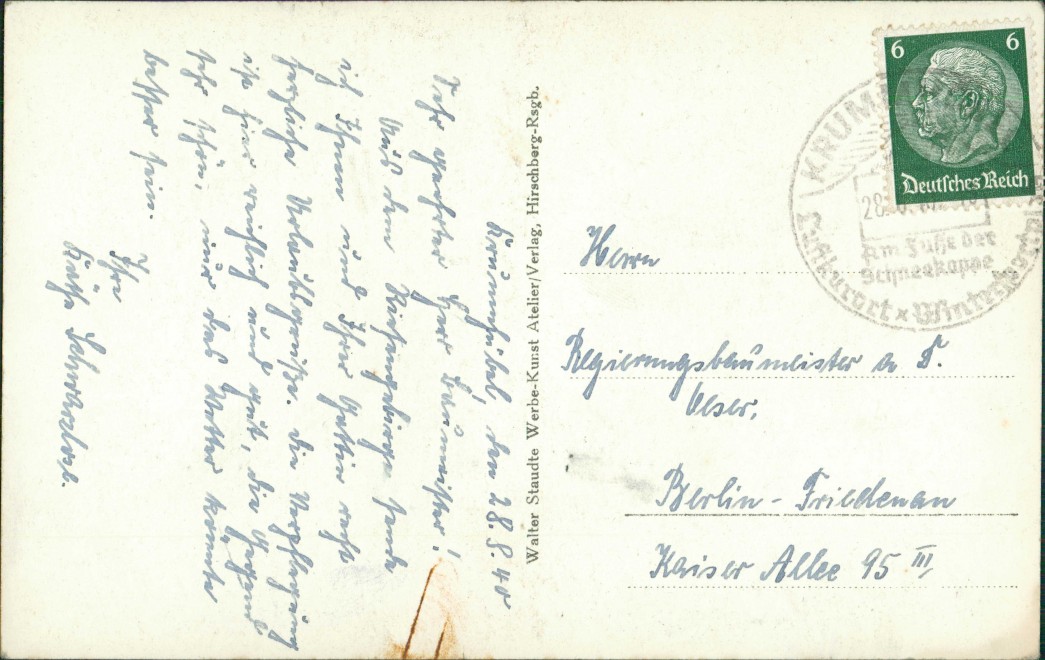 Krummhübel, den 28.8.40
Sehr geehrter Herr Baumeister!
Aus dem Riesengebirge sende
ich Ihnen und Ihrer Gattin recht
herzliche Urlaubsgrüße. Die Verpflegung
ist hier reichlich und gut, die Gegend
sehr schön, nur das Wetter könnte
besser sein.
Ihre
Käthe
Walter Staudte Werbe-Kunst Atelier/Verlag, Hirschberg-Rsgb.
6 6
Deutsches Reich
KRUM
28
Am Fuße der
Schneekoppe
Luftkurort x Wintersp
Herrn
Regierungsbaumeister a D.
Oeser,
Berlin-Friedenau
Kaiser Allee 95 III